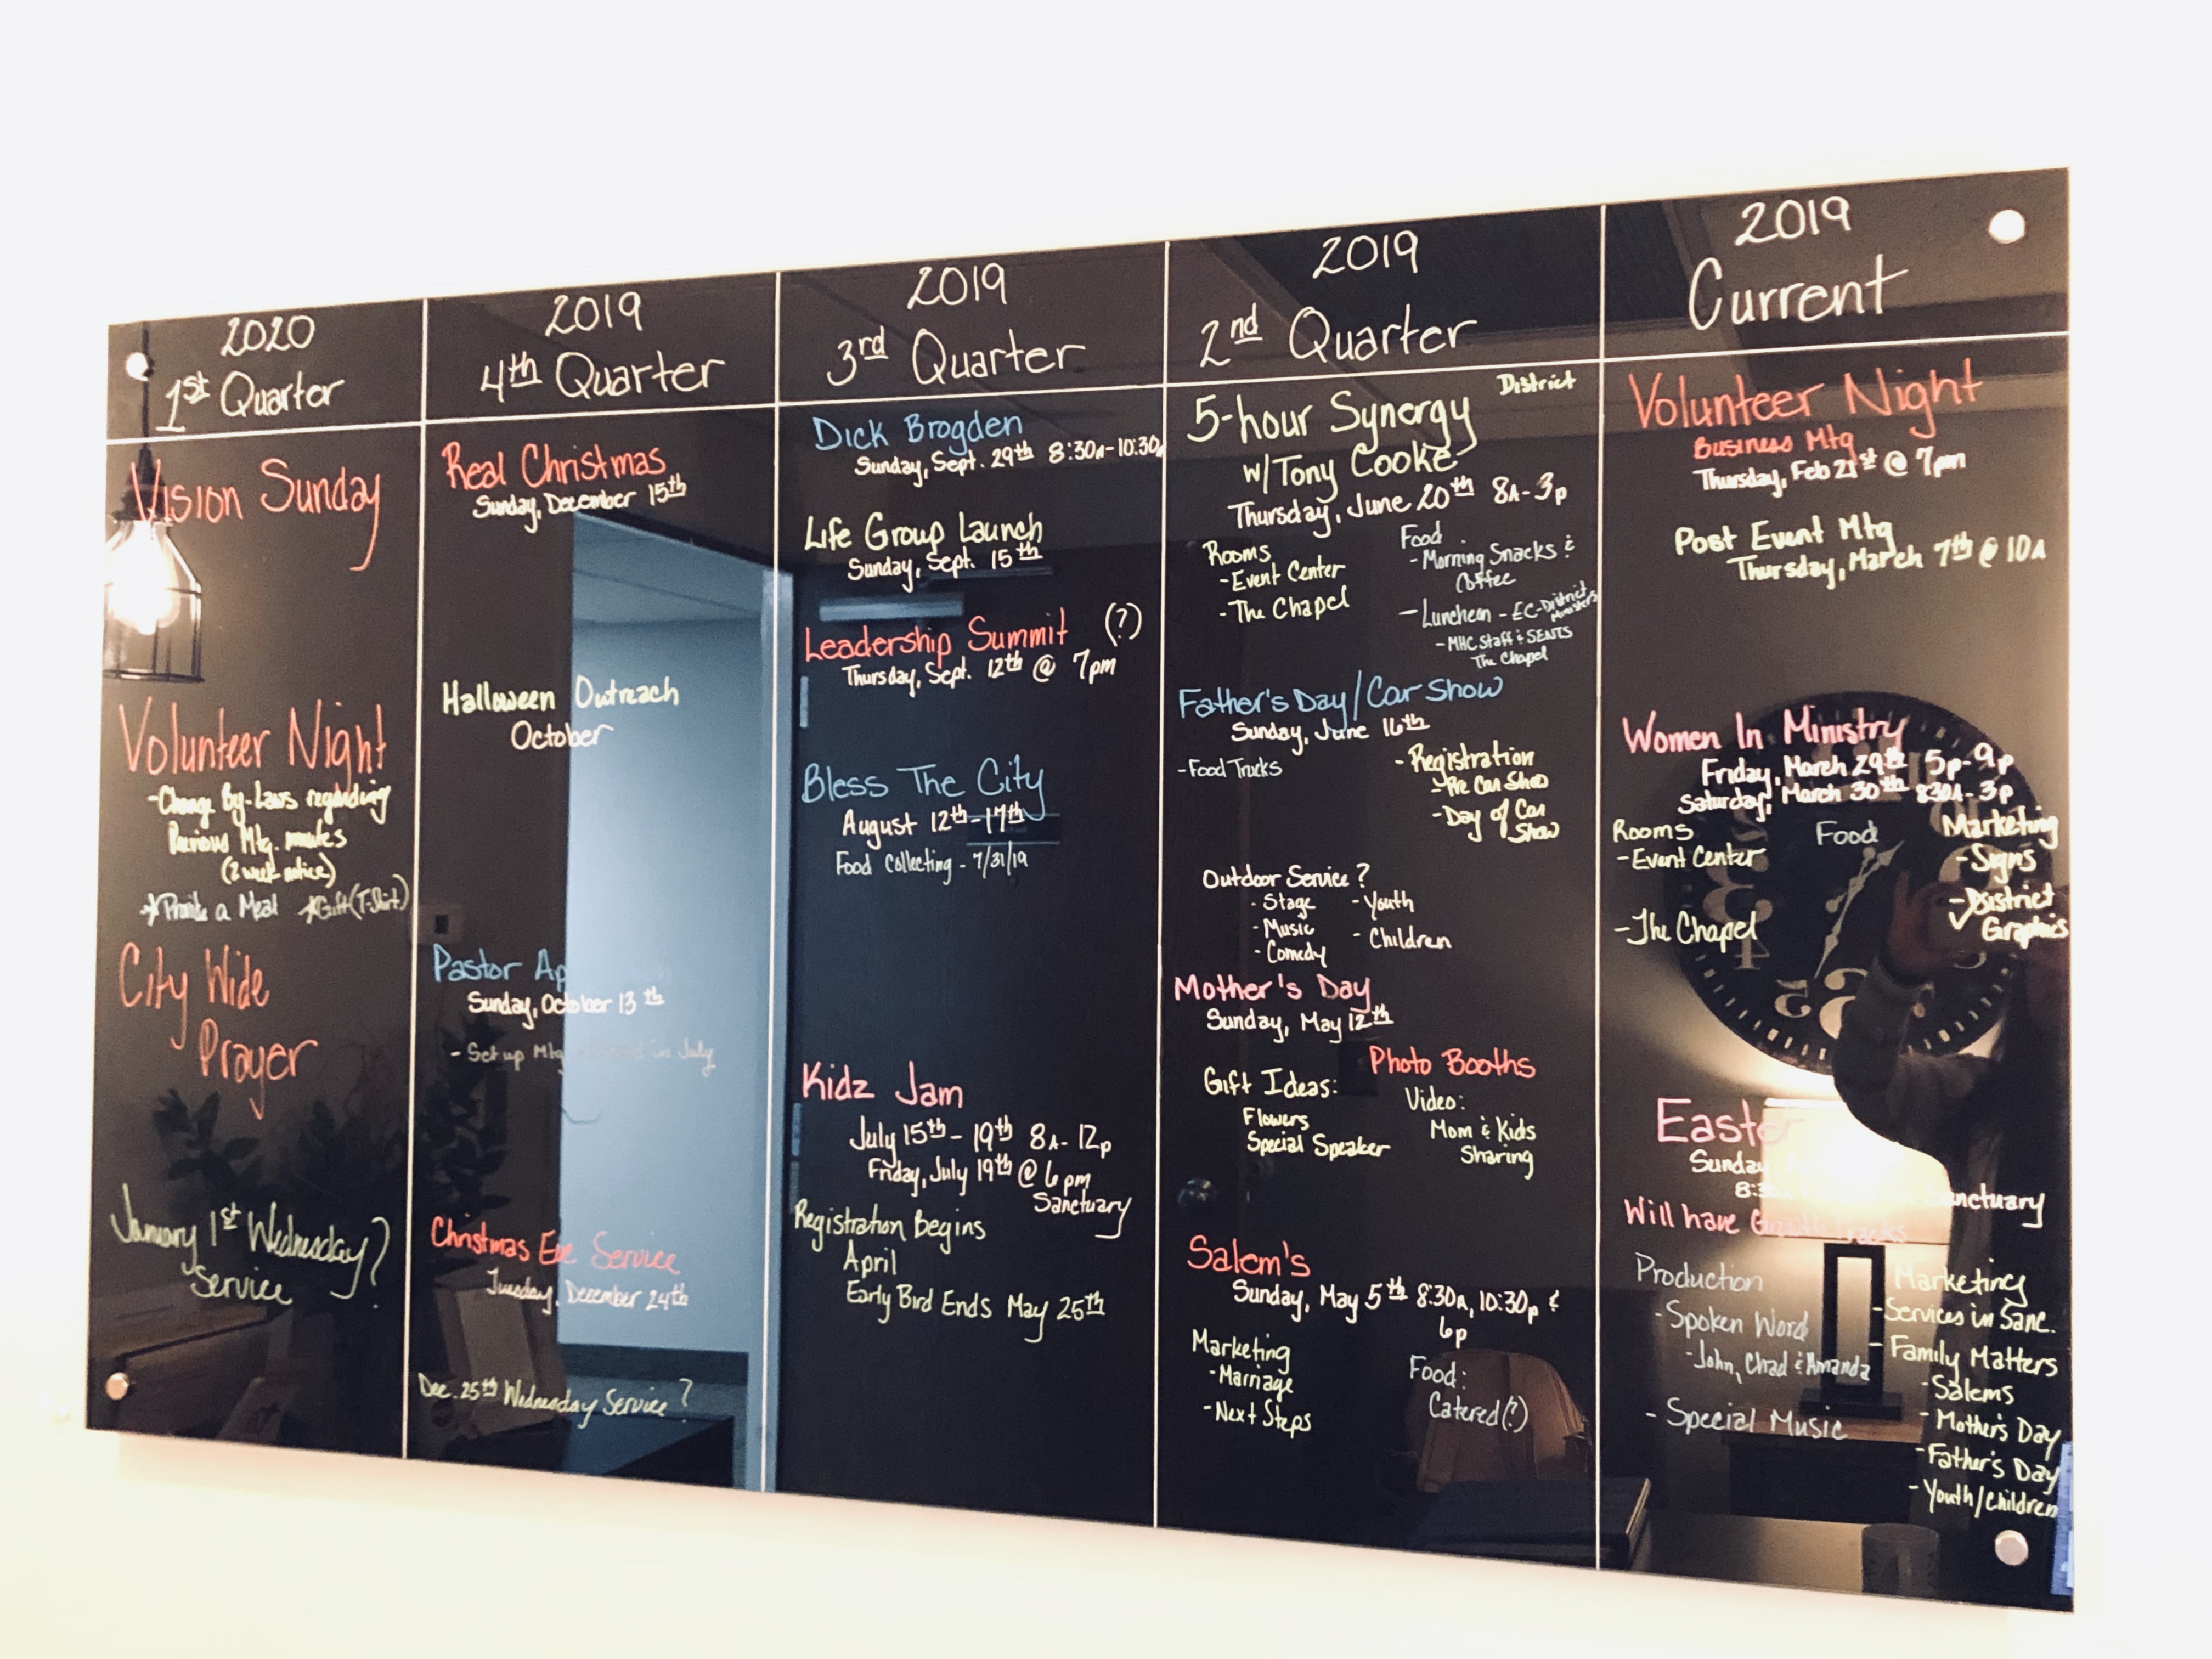 2020
1st Quarter
Vision Sunday
Volunteer Night
-Change By-Laws regarding
Previous Mtg. minutes
(2 week notice)
*Provide a Meal *Gift (T-Shirt)
City Wide
Prayer
January 1st Wednesday?
Service
2019
4th Quarter
Real Christmas
Sunday, December 15th
Halloween Outreach
October
Pastor Ap
Sunday, October 13th
- Set up Mtg in July
Christmas Eve Service
Tuesday, December 24th
Dec. 25th Wednesday Service?
2019
3rd Quarter
Dick Brogden
Sunday, Sept. 29th 8:30a-10:30a
Life Group Launch
Sunday, Sept. 15th
Leadership Summit (?)
Thursday, Sept. 12th @ 7pm
Bless The City
August 12th-17th
Food Collecting - 7/31/19
Kidz Jam
July 15th - 19th 8A-12p
Friday, July 19th @ 6pm
Sanctuary
Registration Begins
April
Early Bird Ends May 25th
2019
2nd Quarter
District
5-hour Synergy
w/Tony Cooke
Thursday, June 20th 8A-3p
Rooms
-Event Center
-The Chapel
Food
-Morning Snacks &
Coffee
-Luncheon - EC-District
Ministers
-MHC Staff & SENTS
The Chapel
Father's Day/Car Show
Sunday, June 16th
-Food Trucks
-Registration
-Pre Car Show
-Day of Car
Show
Outdoor Service?
- Stage
- Music
- Comedy
-Youth
- Children
Mother's Day
Sunday, May 12th
Gift Ideas:
Flowers
Special Speaker
Photo Booths
Video:
Mom & Kids
Sharing
Salem's
Sunday, May 5th 8:30a, 10:30p &
6p
Marketing
-Marriage
-Next Steps
Food:
Catered(?)
2019
Current
Volunteer Night
Business Mtg
Thursday, Feb 21st @ 7pm
Post Event Mtg
Thursday, March 7th @ 10A
Women In Ministry
Friday, March 29th 5p-9p
Saturday, March 30th 830A-3p
Rooms
-Event Center
-The Chapel
Food
Marketing
-Signs
-District
Graphics
Easter
Sunday
Sanctuary
Will have Growth Tracks
Production
-Spoken Word
-John, Chad & Amanda
- Special Music
Marketing
-Services in Sanc.
-Family Matters
-Salems
-Mother's Day
-Father's Day
-Youth/Children